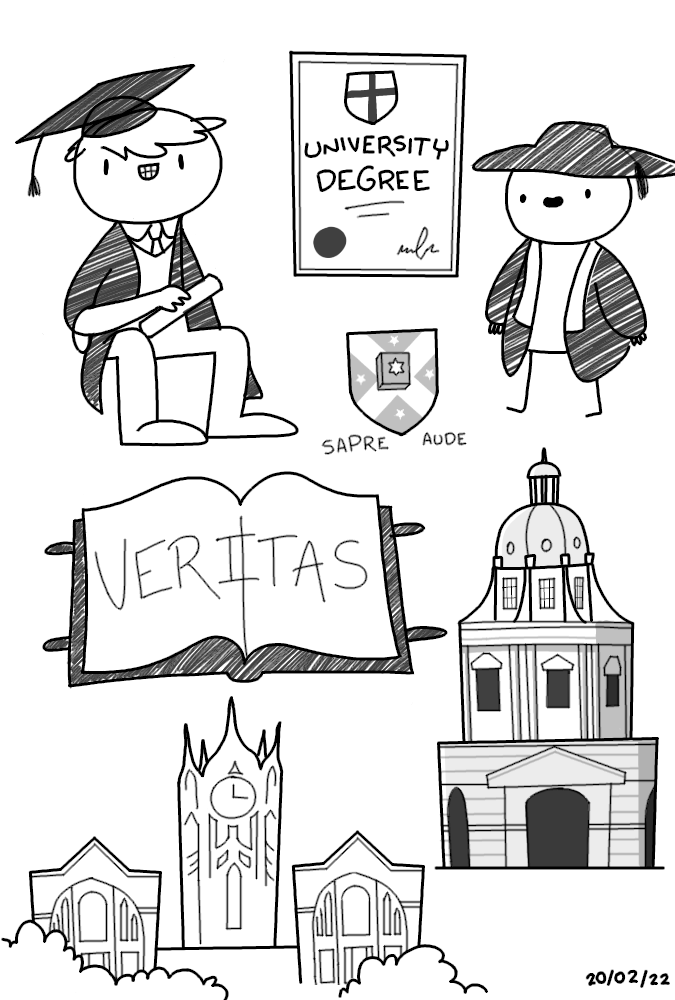 UNIVERSITY
DEGREE
SAPRE AUDE
VERITAS
20/02/22